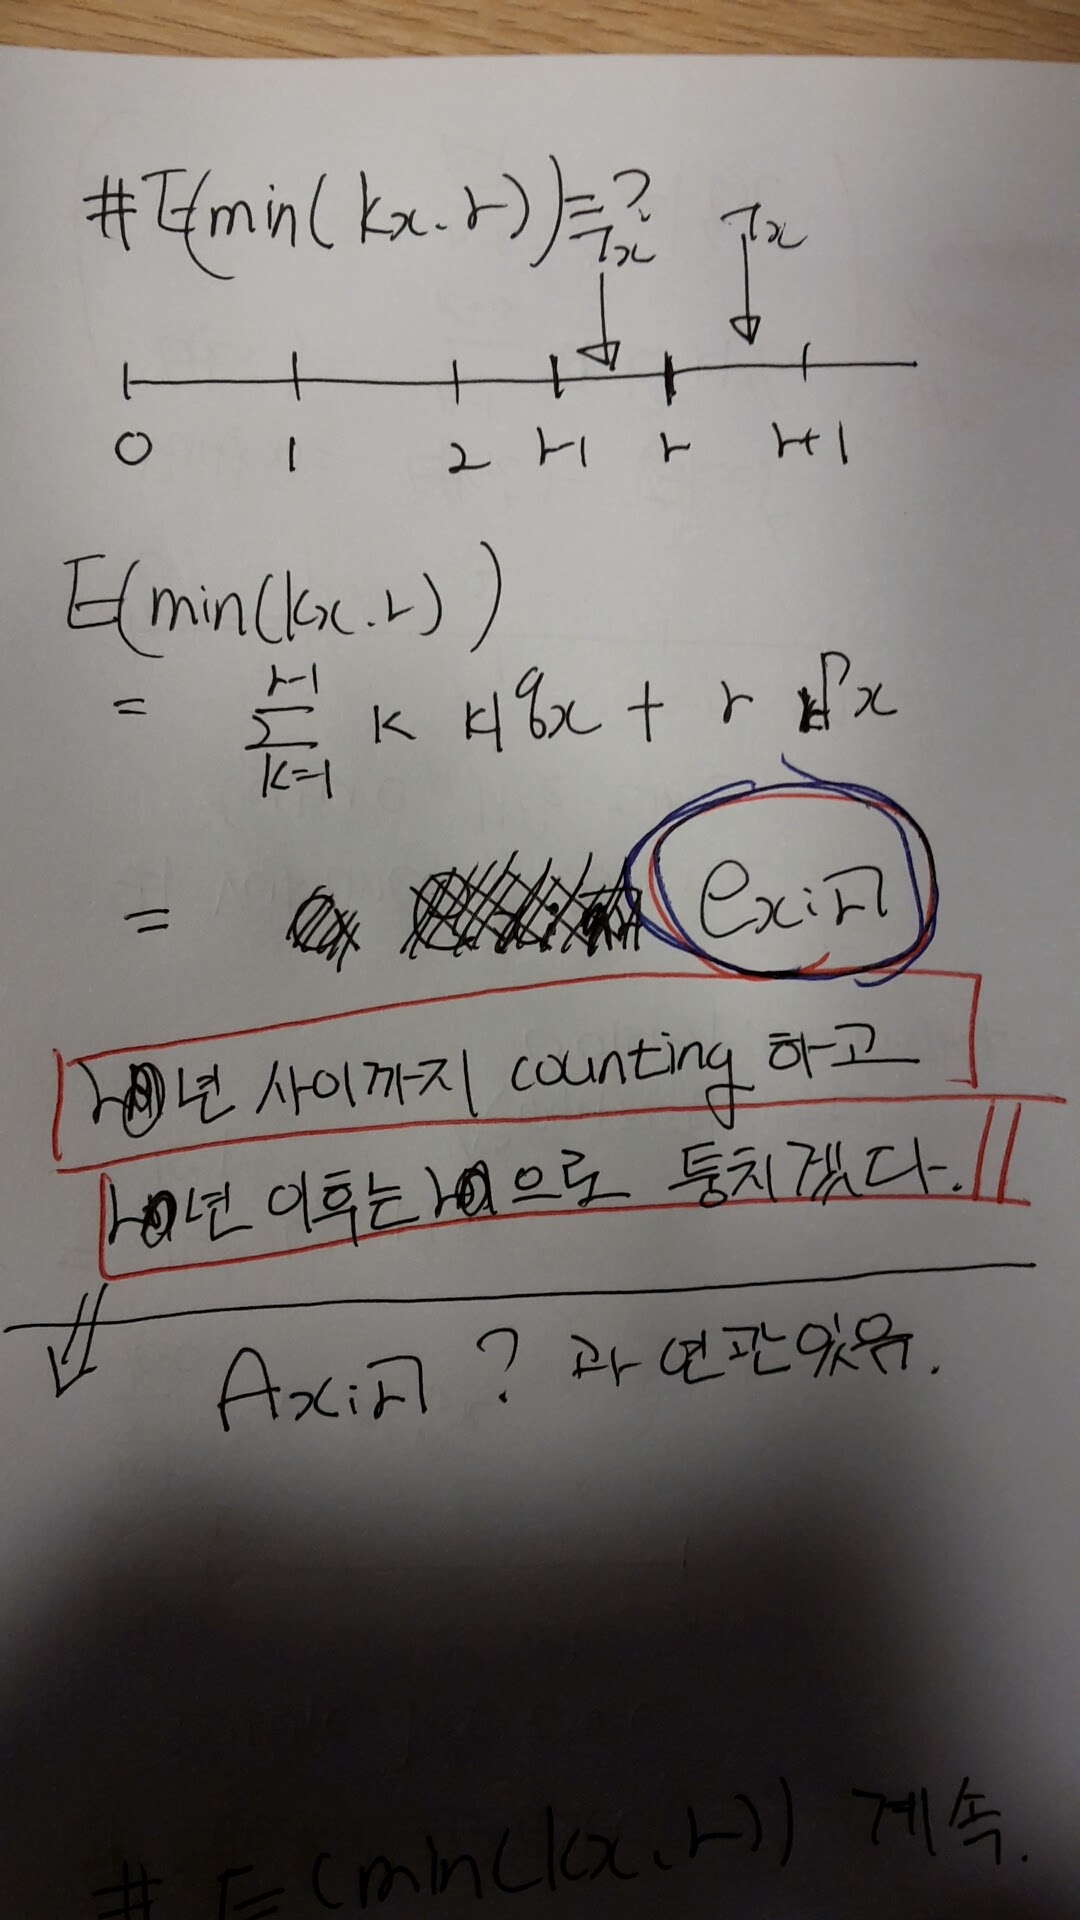 #E(min(kx.r))=?
Tx Tx
0 1 2 r-1 r r+1
E(min(kx.r))
= r-1 Σ k=1 k k|qx + r rPx
= ex:r̅|
r년 사이까지 counting 하고
r년 이후는 r으로 퉁치겠다.
Ax:r̅| ? 과 연관있유.
# E(min(kx.r)) 계속.